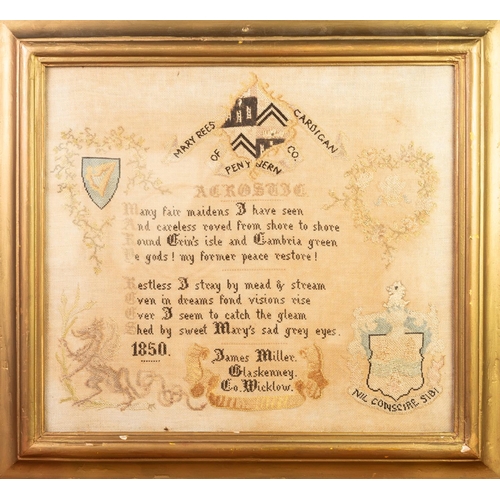 MARY REES
OF
PENY WERN
CO.
CARDIGAN
ACROSTIC
Many fair maidens I have seen
And careless roved from shore to shore
Round Erin's isle and Cambria green
Ye gods! my former peace restore!
Restless I stray by mead & stream
Even in dreams fond visions rise
Ever I seem to catch the gleam
Shed by sweet Mary's sad grey eyes.
1850.
James Miller.
Glaskenney.
Co. Wicklow.
NIL CONSCIRE SIBI